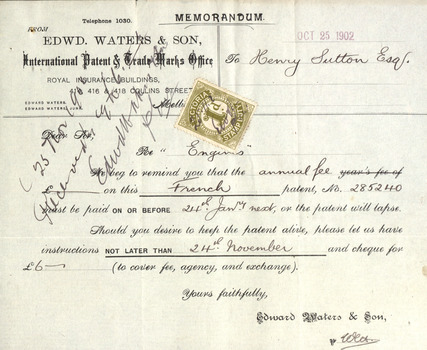 Telephone 1030.
MEMORANDUM.
OCT 25 1902
FROM
EDWD. WATERS & SON,
International Patent & Trade Marks Office
ROYAL INSURANCE BUILDINGS,
414, 416 & 418 COLLINS STREET
EDWARD WATERS.
EDWARD WATERS, JUNR.
Melb
To Henry Sutton Esq.
25 Nov 90
Received
Edwd Waters
Dear Sir,
Re "Engines"
We beg to remind you that the annual fee year's fee of
on this French patent, No. 285240
must be paid ON OR BEFORE 24th Jany next, or the patent will lapse.
Should you desire to keep the patent alive, please let us have
instructions NOT LATER THAN 24th November and cheque for
£6 — (to cover fee, agency, and exchange).
Yours faithfully,
Edward Waters & Son,